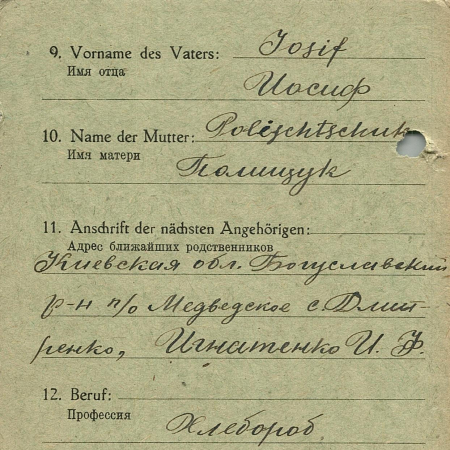 9. Vorname des Vaters: Iosif
Имя отца
Иосиф
10. Name der Mutter: Polischtschuk
Имя матери
Полищук
11. Anschrift der nächsten Angehörigen:
Адрес ближайших родственников
Киевская обл. Богуславский
р-н п/о Медведское с. Дмит-
ренко, Игнатенко И. Ф.
12. Beruf:
Профессия
Хлебороб.